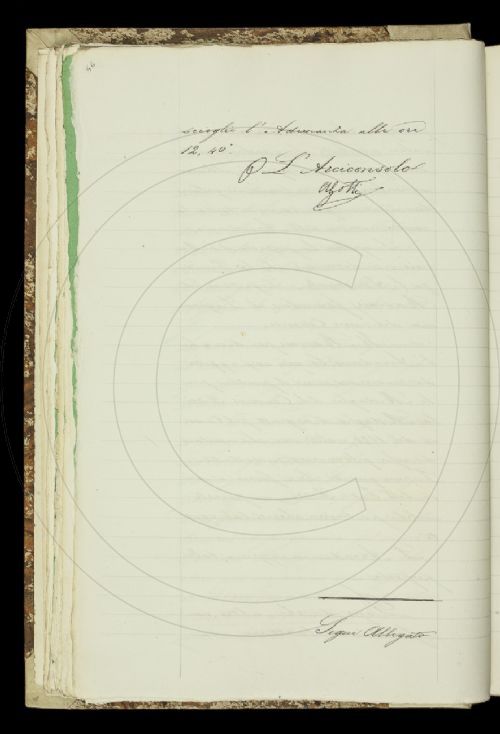 46
scioglie l'Adunanza alle ore
12,40'.
P. L'Arciconsolo
Segue Allegato